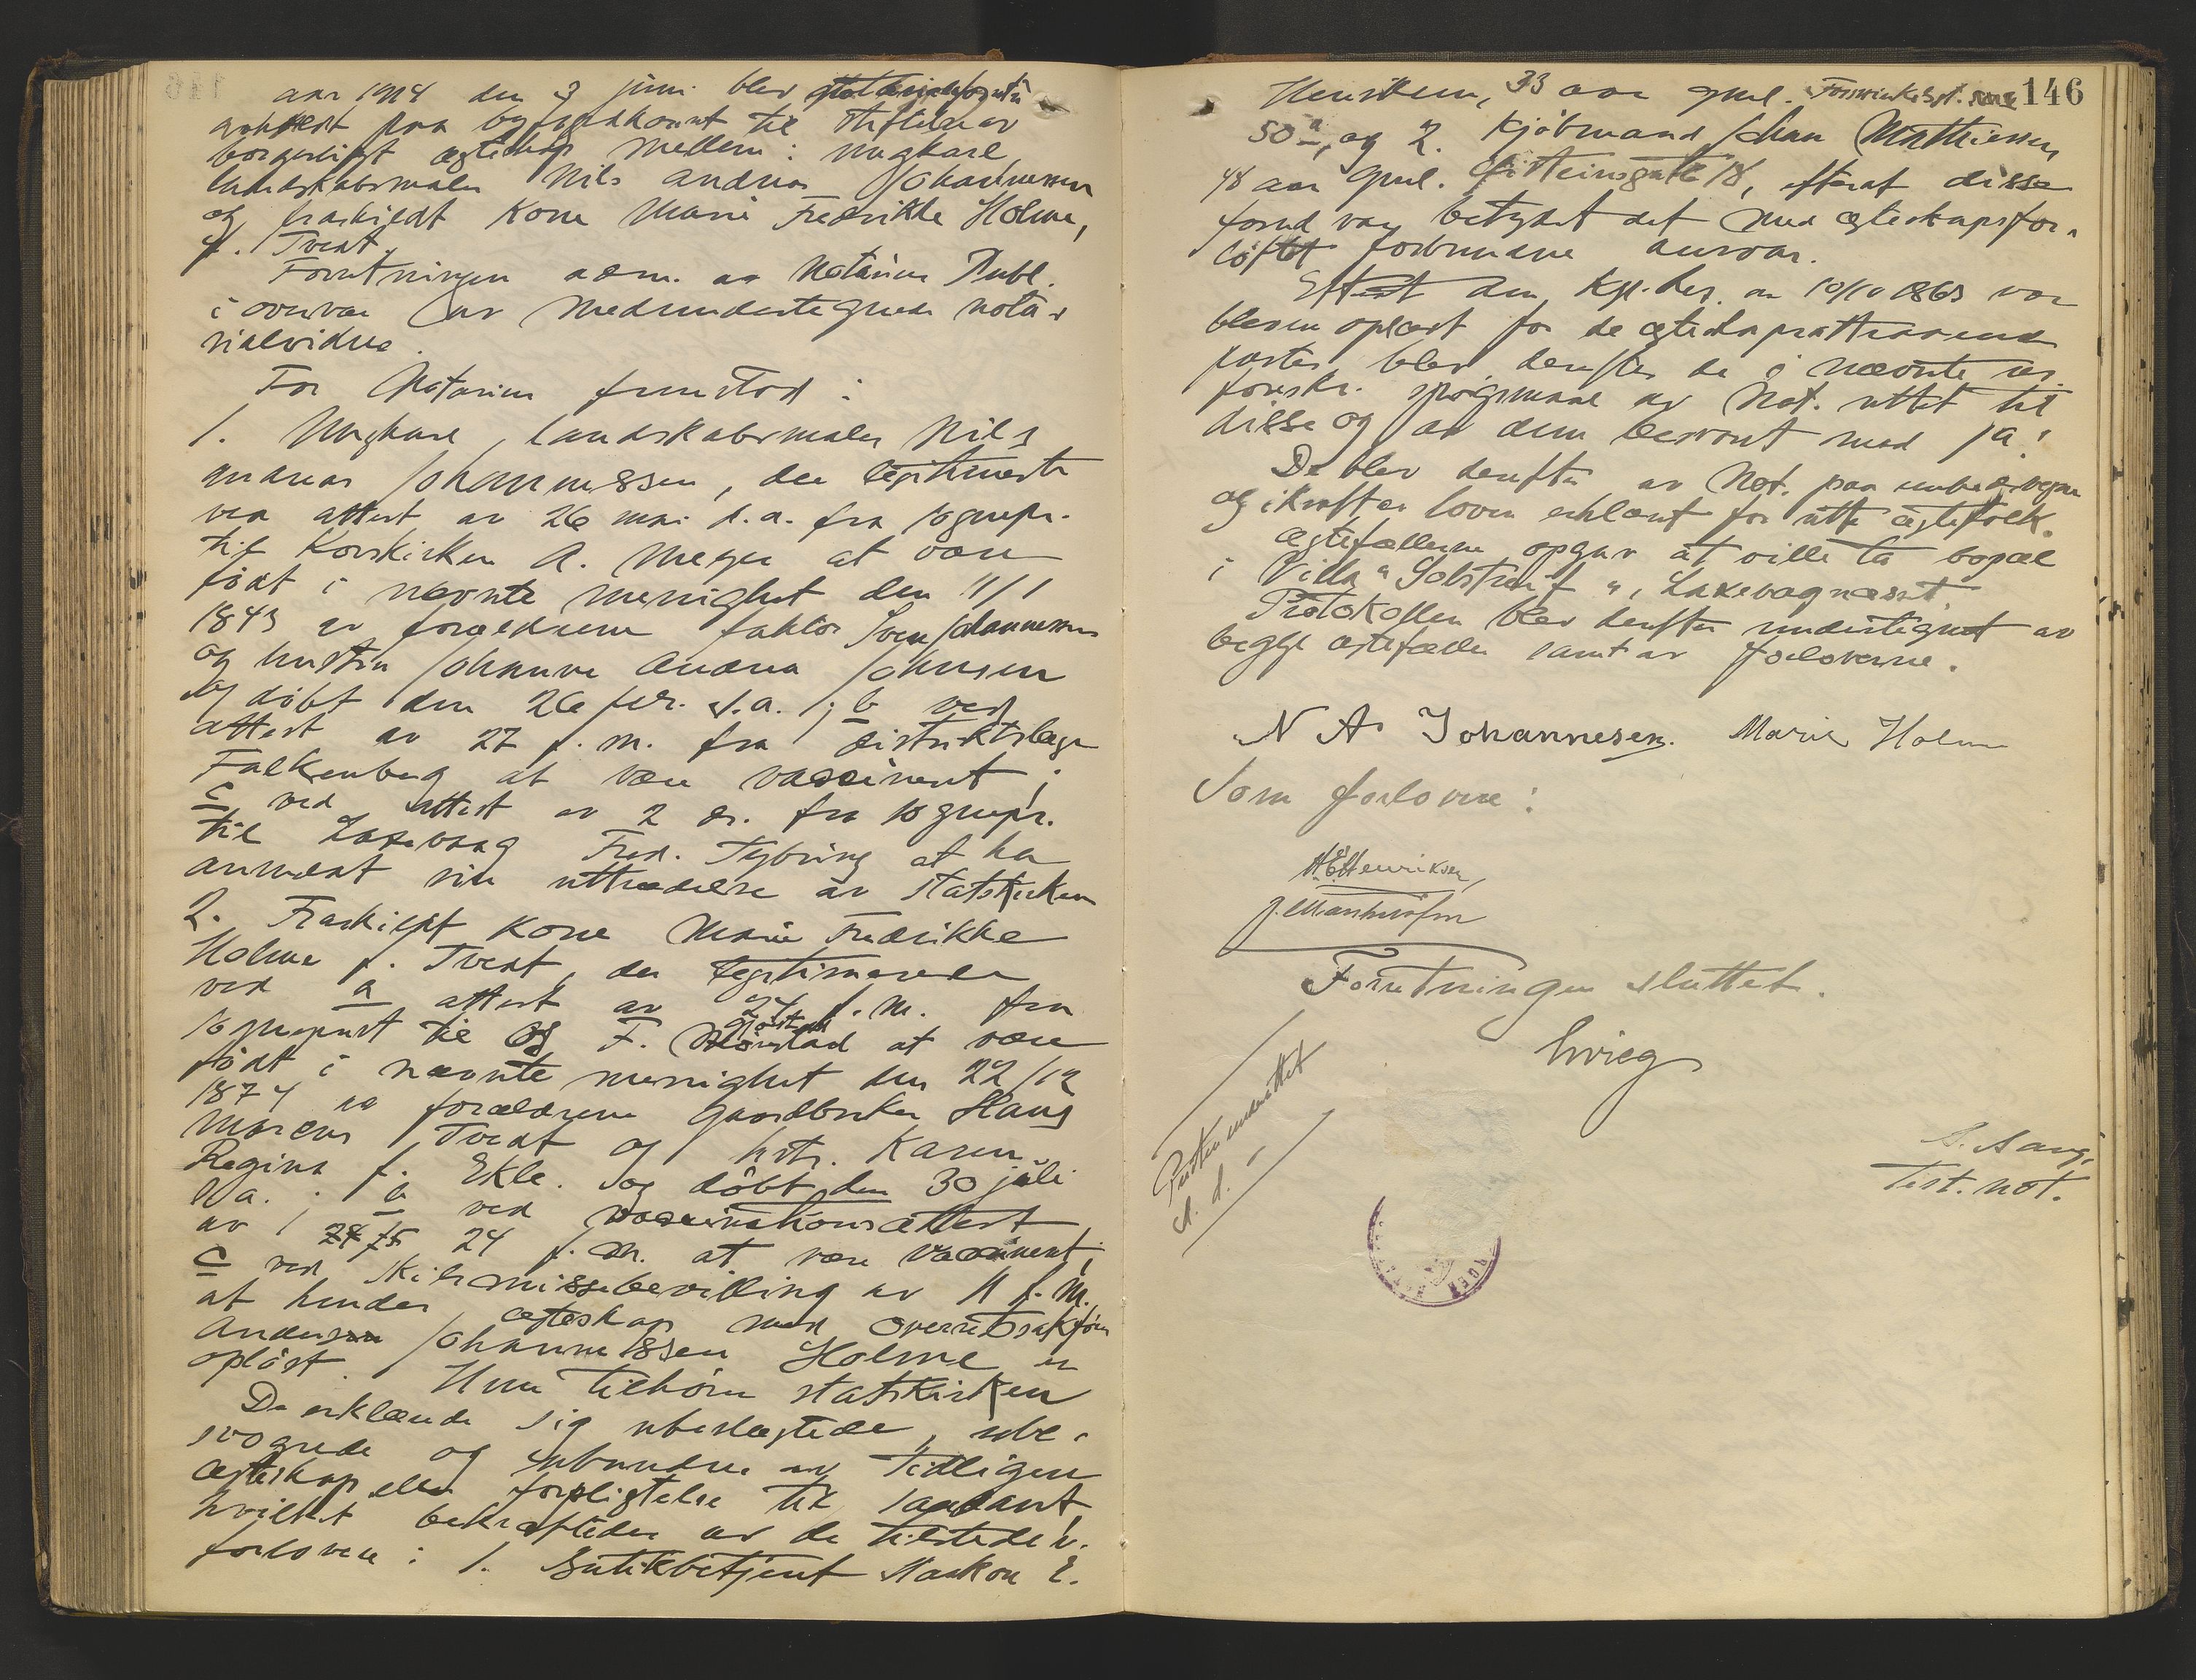 aar 1914 den 3 juni blev notarialforretn
avholdt paa byfogdkontoret til stiftelse av
borgerligt egteskap mellem: ungkarl
landskabsmaler Nils Andreas Johannessen
og fraskildt kone Marie Fredrikke Holme,
f. Tveit.
Forretningen adm. av Notarius Publ.
i overvær av medundertegnede nota-
rialvidne.
For Notarius fremstod:
1. Ungkarl, landskabsmaler Nils
Andreas Johannessen, der legitimerte
ved attest av 26 mai d.a. fra sognepr.
til Korskirken A. Meyer at være
født i nævnte menighet den 11/1
1843 av forældrene faktor Sven Johannessen
og hustru Johanne Andrea Johnsen
og døbt den 26 febr. s.a.; b ved
attest av 27 f.m. fra distriktslæge
Falkenberg at være vaccinert;
c ved attest av 2 ds. fra sognepr.
til Laxevaag Fred. Tybring at ha
anmeldt sin uttrædelse av statskirken
2. Fraskildt kone Marie Fredrikke
Holme f. Tveit, der legitimerede
ved a attest av 24 f.m. fra
sogneprest til Os F. at være
født i nævnte menighet den 22/12
1874 av forældrene gaardbruker Hans
Marcus Tveit og hstr. Karen
Regina f. Ekle. og døbt den 30 juli
s.a.; b ved vaccinationsattest
av 24 f.m. at være vaccinert;
c ved skilsmissebevilling av 11 f.m.
at hendes egteskap med overretssakfører
Andersen Johannessen Holme er
opløst. Hun tilhører statskirken
De erklærede sig ubeslegtede, ube-
svogrede og ubundne av tidligere
egteskap eller forpligtelse til saadant,
hvilket bekræftedes av de tilstedev.
forlovere: 1. Butikbetjent Haakon E.
146
Henriksen, 33 aar gml.
50 a, og 2. Kjøbmand Johan Mathiesen,
48 aar gml. 18, efterat disse
forud var betydet det med egteskapsfor-
løftet forbundne ansvar.
Efterat den kgl. res. av 10/10 1863 var
bleven oplæst for de egteskapsattraaende
parter blev derefter de i nævnte res.
foreskr. spørgsmaal av Not. rettet til
disse og av dem besvart med ja!
De blev derefter av Not. paa embeds vegne
og i kraft av loven erklæret for rette egtefolk.
Egtefællerne opgav at ville ta bopæl
i Villa "Solstreif", Laxevaagnesset.
Protokollen blev derefter undertegnet av
begge egtefæller samt av forloverne.
N A Johannesen. Marie Holme
Som forlovere:
H. E. Henriksen,
J. Mathiesen
Forretningen sluttet.
Grieg
Presten underrettet
s. d.
Test. not.